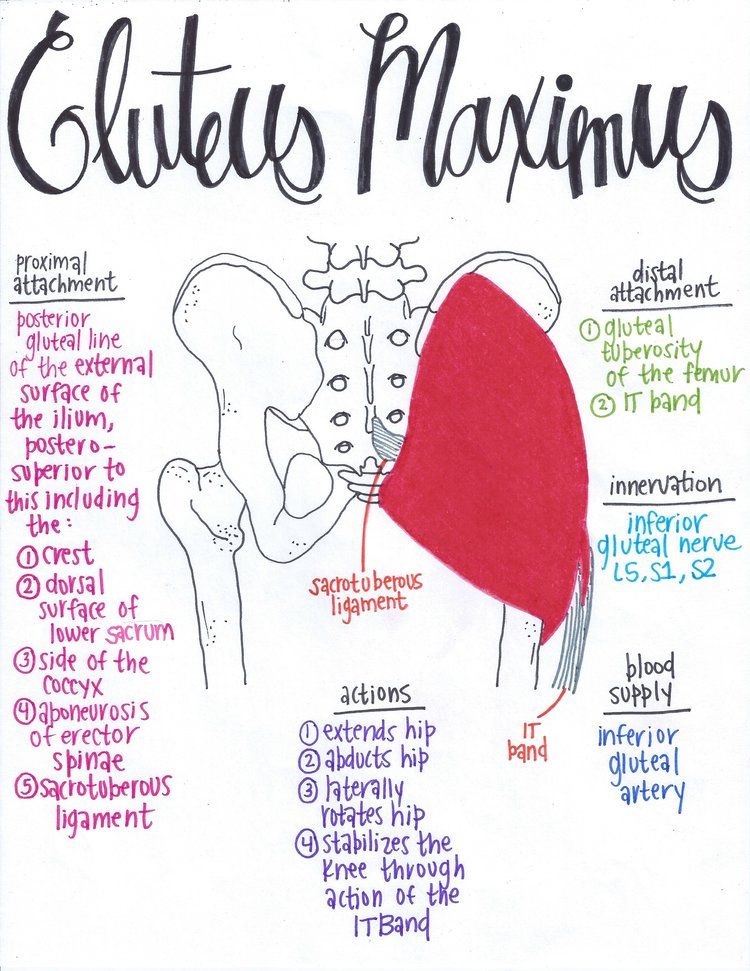 Gluteus Maximus
proximal
attachment
posterior
gluteal line
of the external
surface of
the ilium,
postero-
superior to
this including
the:
① crest
② dorsal
surface of
lower sacrum
③ side of the
coccyx
④ aponeurosis
of erector
spinae
⑤ sacrotuberous
ligament
sacrotuberous
ligament
actions
① extends hip
② abducts hip
③ laterally
rotates hip
④ stabilizes the
knee through
action of the
IT Band
distal
attachment
① gluteal
tuberosity
of the femur
② IT band
innervation
inferior
gluteal nerve
L5, S1, S2
blood
supply
inferior
gluteal
artery
IT
band